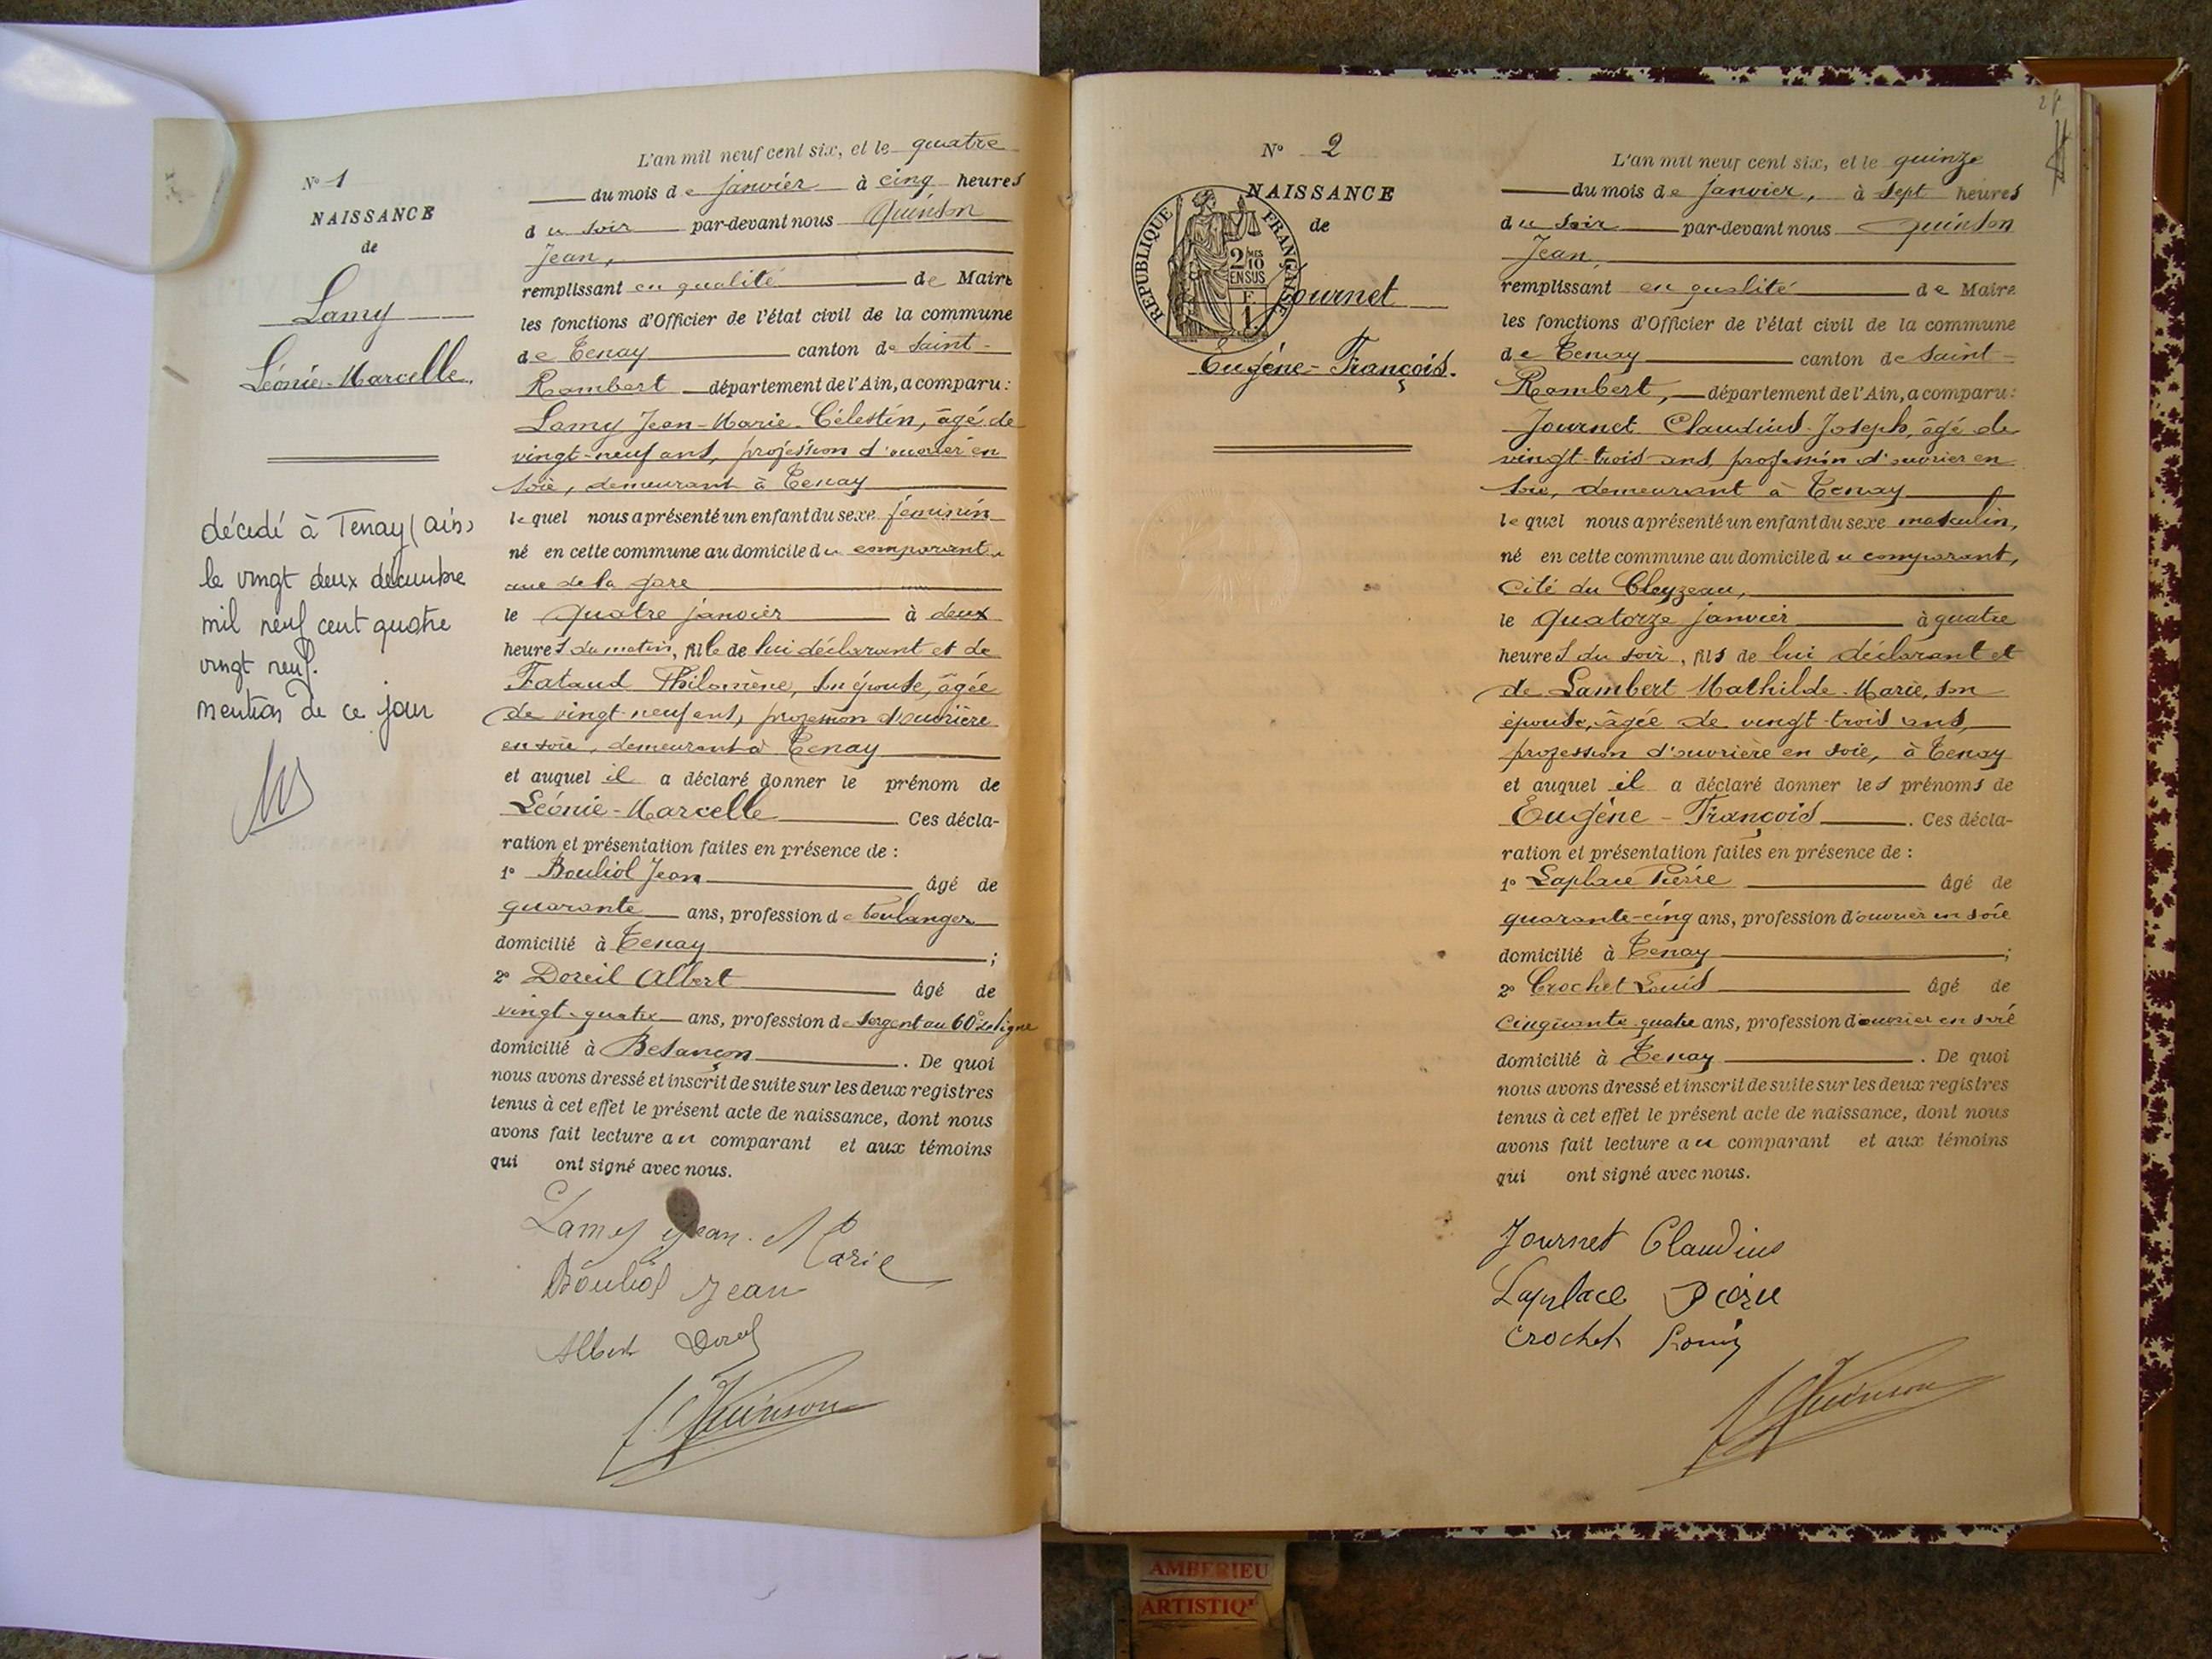 N° 1
NAISSANCE
de
Lamy
Léonie-Marcelle.
décedé à Tenay (ain)
le vingt deux décembre
mil neuf cent quatre
vingt neuf.
mention de ce jour
L'an mil neuf cent six, et le quatre
du mois de janvier à cinq heures
du soir par-devant nous Quinson
Jean,
remplissant en qualité de Maire
les fonctions d'Officier de l'état civil de la commune
de Tenay canton de Saint-
Rambert département de l'Ain, a comparu :
Lamy Jean-Marie-Célestin, âgé de
vingt-neuf ans, profession d'ouvrier en
soie, demeurant à Tenay
lequel nous a présenté un enfant du sexe féminin
né en cette commune au domicile du comparant,
rue de la gare
le quatre janvier à deux
heures du matin, fille de lui déclarant et de
Fataud Philomène, son épouse, âgée
de vingt-neuf ans, profession d'ouvrière
en soie, demeurant à Tenay
et auquel il a déclaré donner le prénom de
Léonie-Marcelle Ces décla-
ration et présentation faites en présence de :
1° Bouliol Jean âgé de
quarante ans, profession de boulanger
domicilié à Tenay ;
2° Doreil Albert âgé de
vingt-quatre ans, profession de sergent au 60e de ligne
domicilié à Besançon . De quoi
nous avons dressé et inscrit de suite sur les deux registres
tenus à cet effet le présent acte de naissance, dont nous
avons fait lecture au comparant et aux témoins
qui ont signé avec nous.
Lamy Jean. Marie
Bouliol Jean
Albert Doreil
J. Quinson
28
N° 2
NAISSANCE
de
REPUBLIQUE FRANÇAISE
2 MES
10
EN SUS
F.
1.
Journet
Eugène-François.
L'an mil neuf cent six, et le quinze
du mois de janvier, à sept heures
du soir par-devant nous Quinson
Jean,
remplissant en qualité de Maire
les fonctions d'Officier de l'état civil de la commune
de Tenay canton de Saint-
Rambert, département de l'Ain, a comparu :
Journet Claudius-Joseph, âgé de
vingt-trois ans, profession d'ouvrier en
soie, demeurant à Tenay
lequel nous a présenté un enfant du sexe masculin,
né en cette commune au domicile du comparant,
cité du Cleyzeau,
le quatorze janvier à quatre
heures du soir, fils de lui déclarant et
de Lambert Mathilde-Marie, son
épouse, âgée de vingt-trois ans,
profession d'ouvrière en soie, à Tenay
et auquel il a déclaré donner les prénoms de
Eugène-François . Ces décla-
ration et présentation faites en présence de :
1° Laplace Pierre âgé de
quarante-cinq ans, profession d'ouvrier en soie
domicilié à Tenay ;
2° Crochet Louis âgé de
cinquante-quatre ans, profession d'ouvrier en soie
domicilié à Tenay . De quoi
nous avons dressé et inscrit de suite sur les deux registres
tenus à cet effet le présent acte de naissance, dont nous
avons fait lecture au comparant et aux témoins
qui ont signé avec nous.
Journet Claudius
Laplace Pierre
Crochet Louis
J. Quinson
AMBERIEU
ARTISTIQ